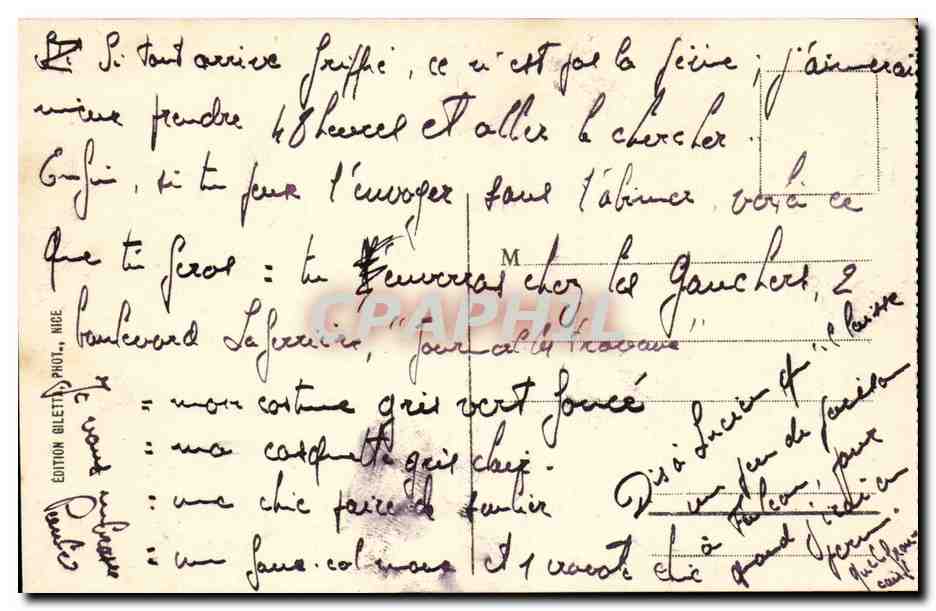 Si tout arrive griffé, ce n'est pas la peine ; j'aimerai
mieux prendre 48 heures et aller le chercher.
Enfin, si tu peux l'envoyer sans l'abimer, voilà ce
que tu feras = tu l'enverras chez les Gauchers, 2
boulevard Laferrière, "Journal des Travaux"
= mon costume gris vert foncé
= ma casquette gris clair.
= une chic paire de soulier
= un faux-col mou et 1 cravate chic
M
Dis à Lucien qu'il laisse
un peu de
à
quand j'irai
Je vous embrasse
ÉDITION GILETTA, PHOT., NICE
CPARHIL